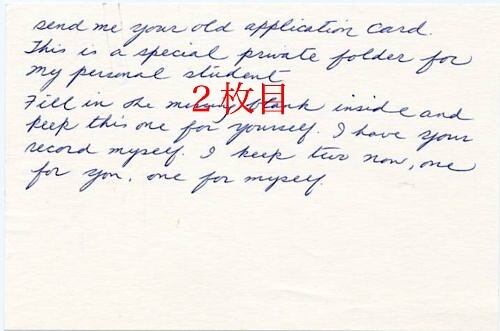 send me your old application card.
This is a special private folder for
my personal student
2枚目
Fill in the blank inside and
keep this one for yourself. I have your
record myself. I keep two now, one
for you, one for myself.